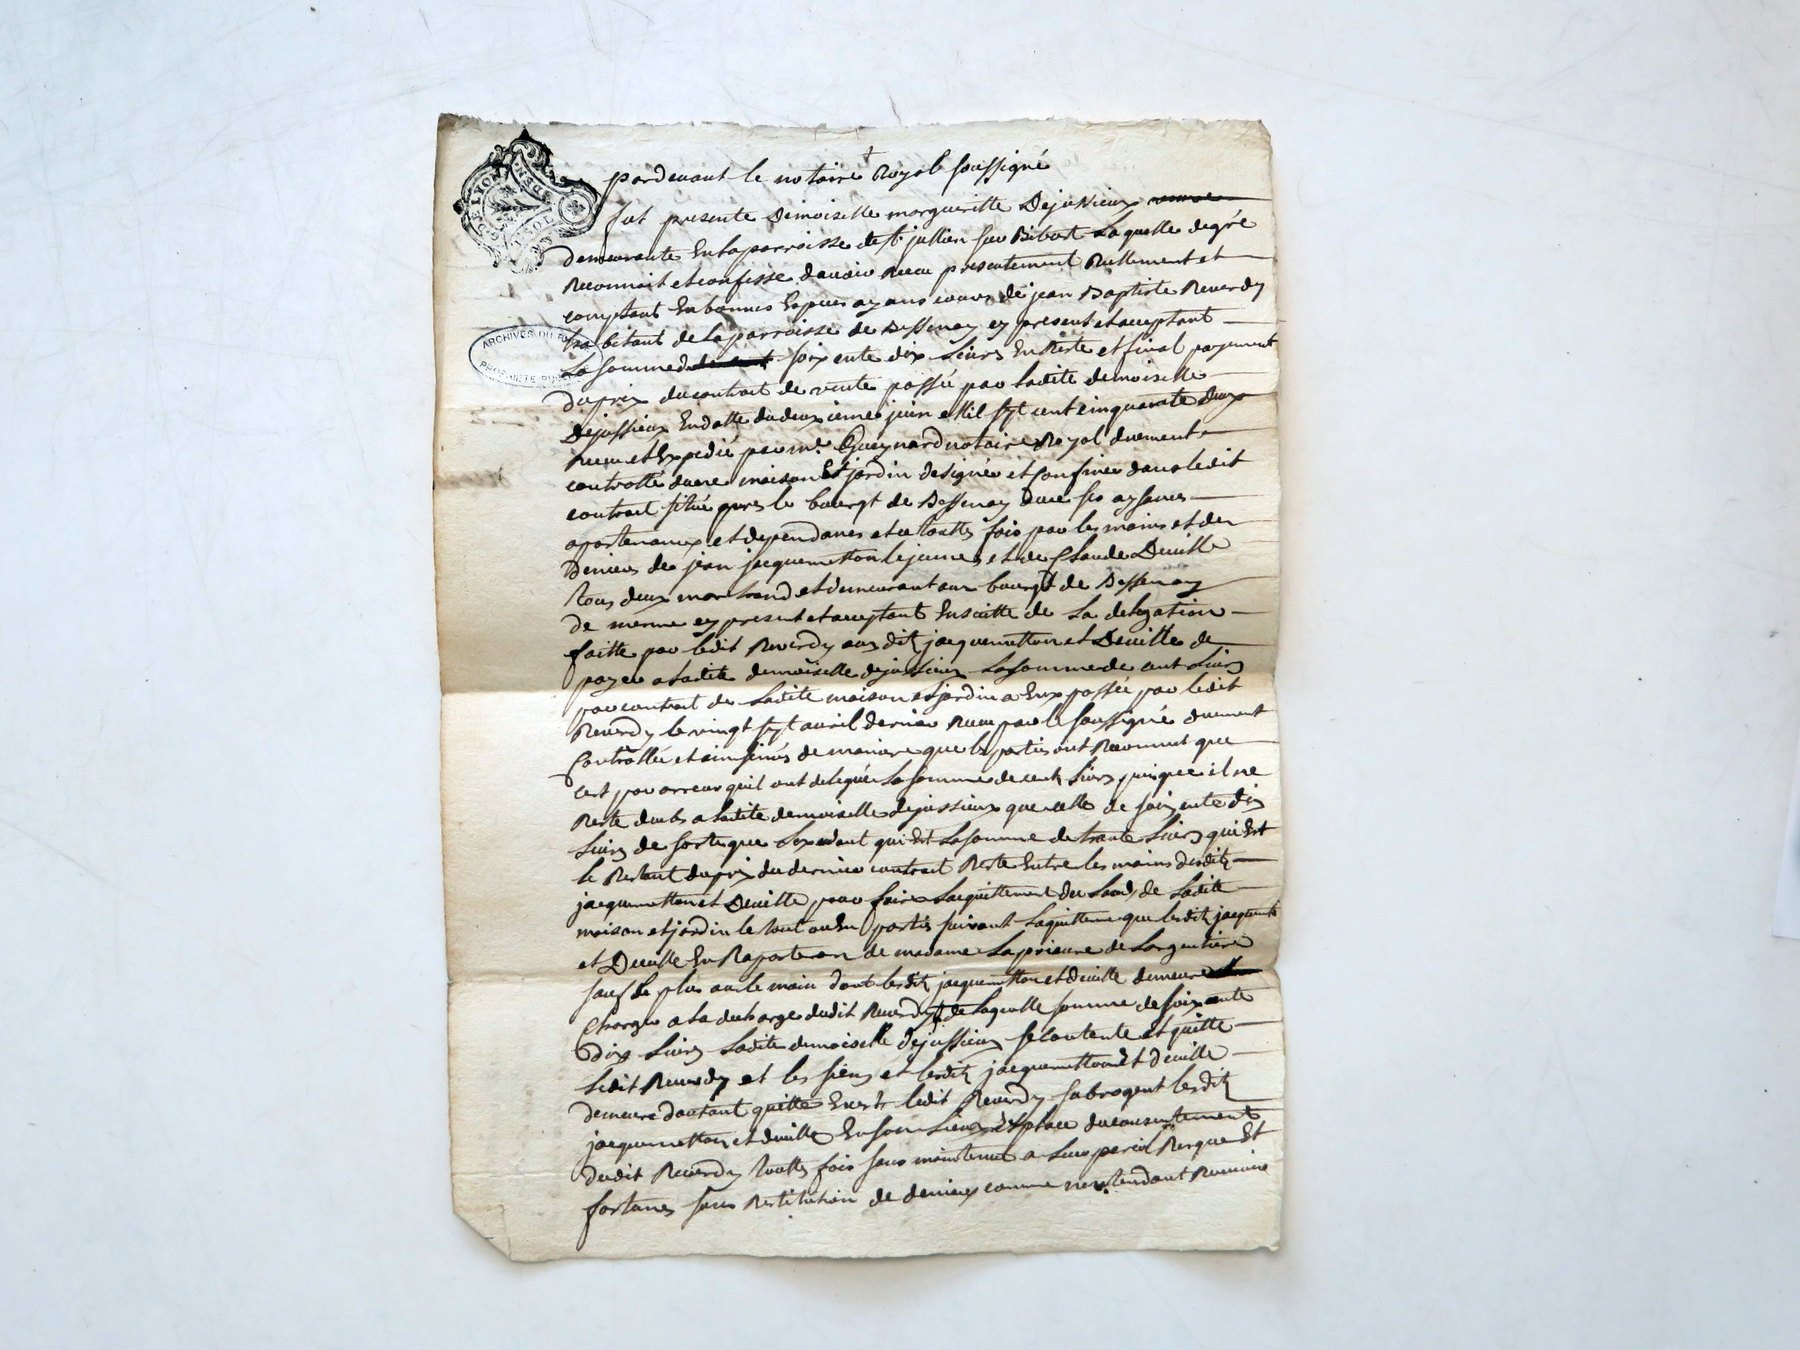 pardevant le notaire Royal soussigné
fut presente Demoiselle margueritte Dejussieux
demeurante En la parroisse de st jullien sur Bibost Laquelle degré
Reconnait et confesse davoir Receu presentement Reellement et
comptant En bonnes Especes ayans cours de jean Baptiste Reverdy
habitant de la parroisse de Bessenay ey present et acceptant
La somme de soixente dix Livres En Reste et final payement
du prix du contrat de vente passée par ladite demoiselle
dejussieux En datte du deuxieme juin Mil sept cent cinquante deux
Receu et Expedié par me Guaynard notaire Royal duement
controllé dune maison Et jardin designée et Confinée dans ledit
contrat située pres le bourgt de Bessenay avec ses aysances
apartenances et dependances et ce touttes fois par les mains et de
Deniers de jean jacquemetton le jeune et de Claude Deville
tous deux marchand et demeurant au bourgt de Bessenay
de meme ey present et acceptant En suitte de La delegation
faitte par ledit Reverdy aux dits jacquemetton et Deville de
payer a ladite demoiselle dejussieux La somme de cent Livres
par contrat de Ladite maison et jardin a Eux passée par ledit
Reverdy le vingt sept avril dernier Receu par le soussigné duement
Controllée et de maniere que les parties ont Reconnut que
cest par erreur quil ont delegué La somme de cent Livres puisque il ne
Reste deubs a ladite demoiselle dejussieux que celle de soixente dix
Livres de sorte que Lexedant qui Est La somme de trante Livres qui Est
le Restant du prix du dernier contrat Reste Entre les mains desdits
jacquemetton et Deville pour faire Lacquittement du Laods de Ladite
maison et jardin le tout ou En partie suivant La quittance que lesdits jacquemetton
et Deville En Raporteron de madame La prieure de Largentiere
sauf le plus ou le moin dont lesdits jacquemetton et deville demeure
Charger a la decharge dudit Reverdy de Laquelle somme de soixante
dix Livres Ladite demoiselle dejussieux se contente et quitte
Ledit Reverdy et les siens et lesdits jacquemetton Et deville
demeure dautant quitte Envers ledit Reverdy subrogent lesdits
jacquemetton et deville En son Lieux et place du consentement
dudit Reverdy touttes fois sans maintenue a Leur peril Risque Et
fortunes sans Restitution de deniers comme
ARCHIVES DU
GEN. DE LYON